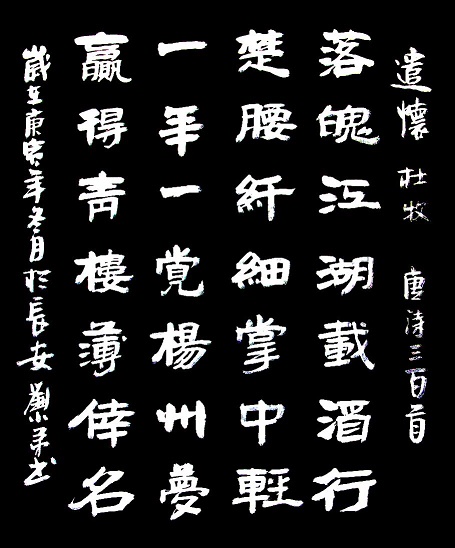 遣懷 杜牧 唐詩三百首
落魄江湖載酒行
楚腰纤細掌中輕
一年一覚楊州夢
贏得青樓薄倖名
歲在庚寅年冬月於長安 书